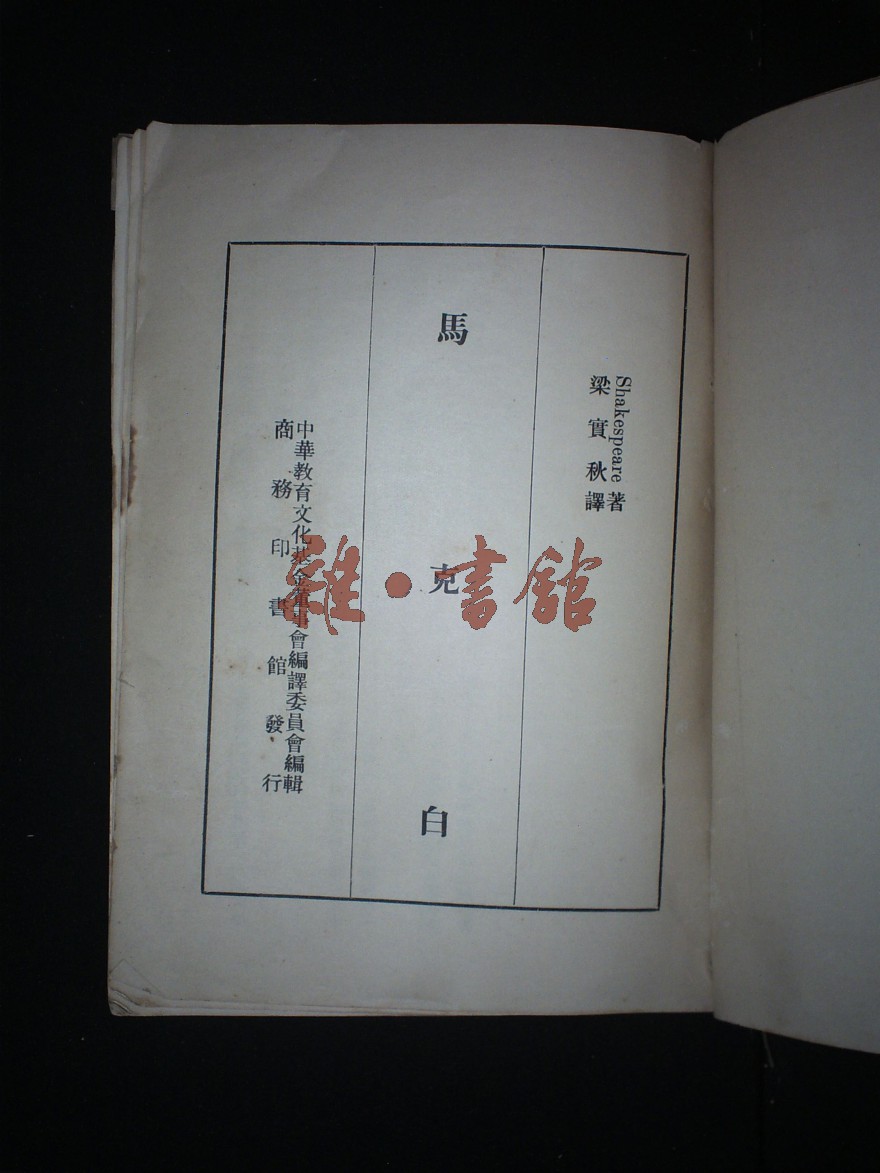 Shakespeare著
梁實秋譯
馬克白
中華教育文化基金董事會編譯委員會編輯
商務印書館發行
雜·書館